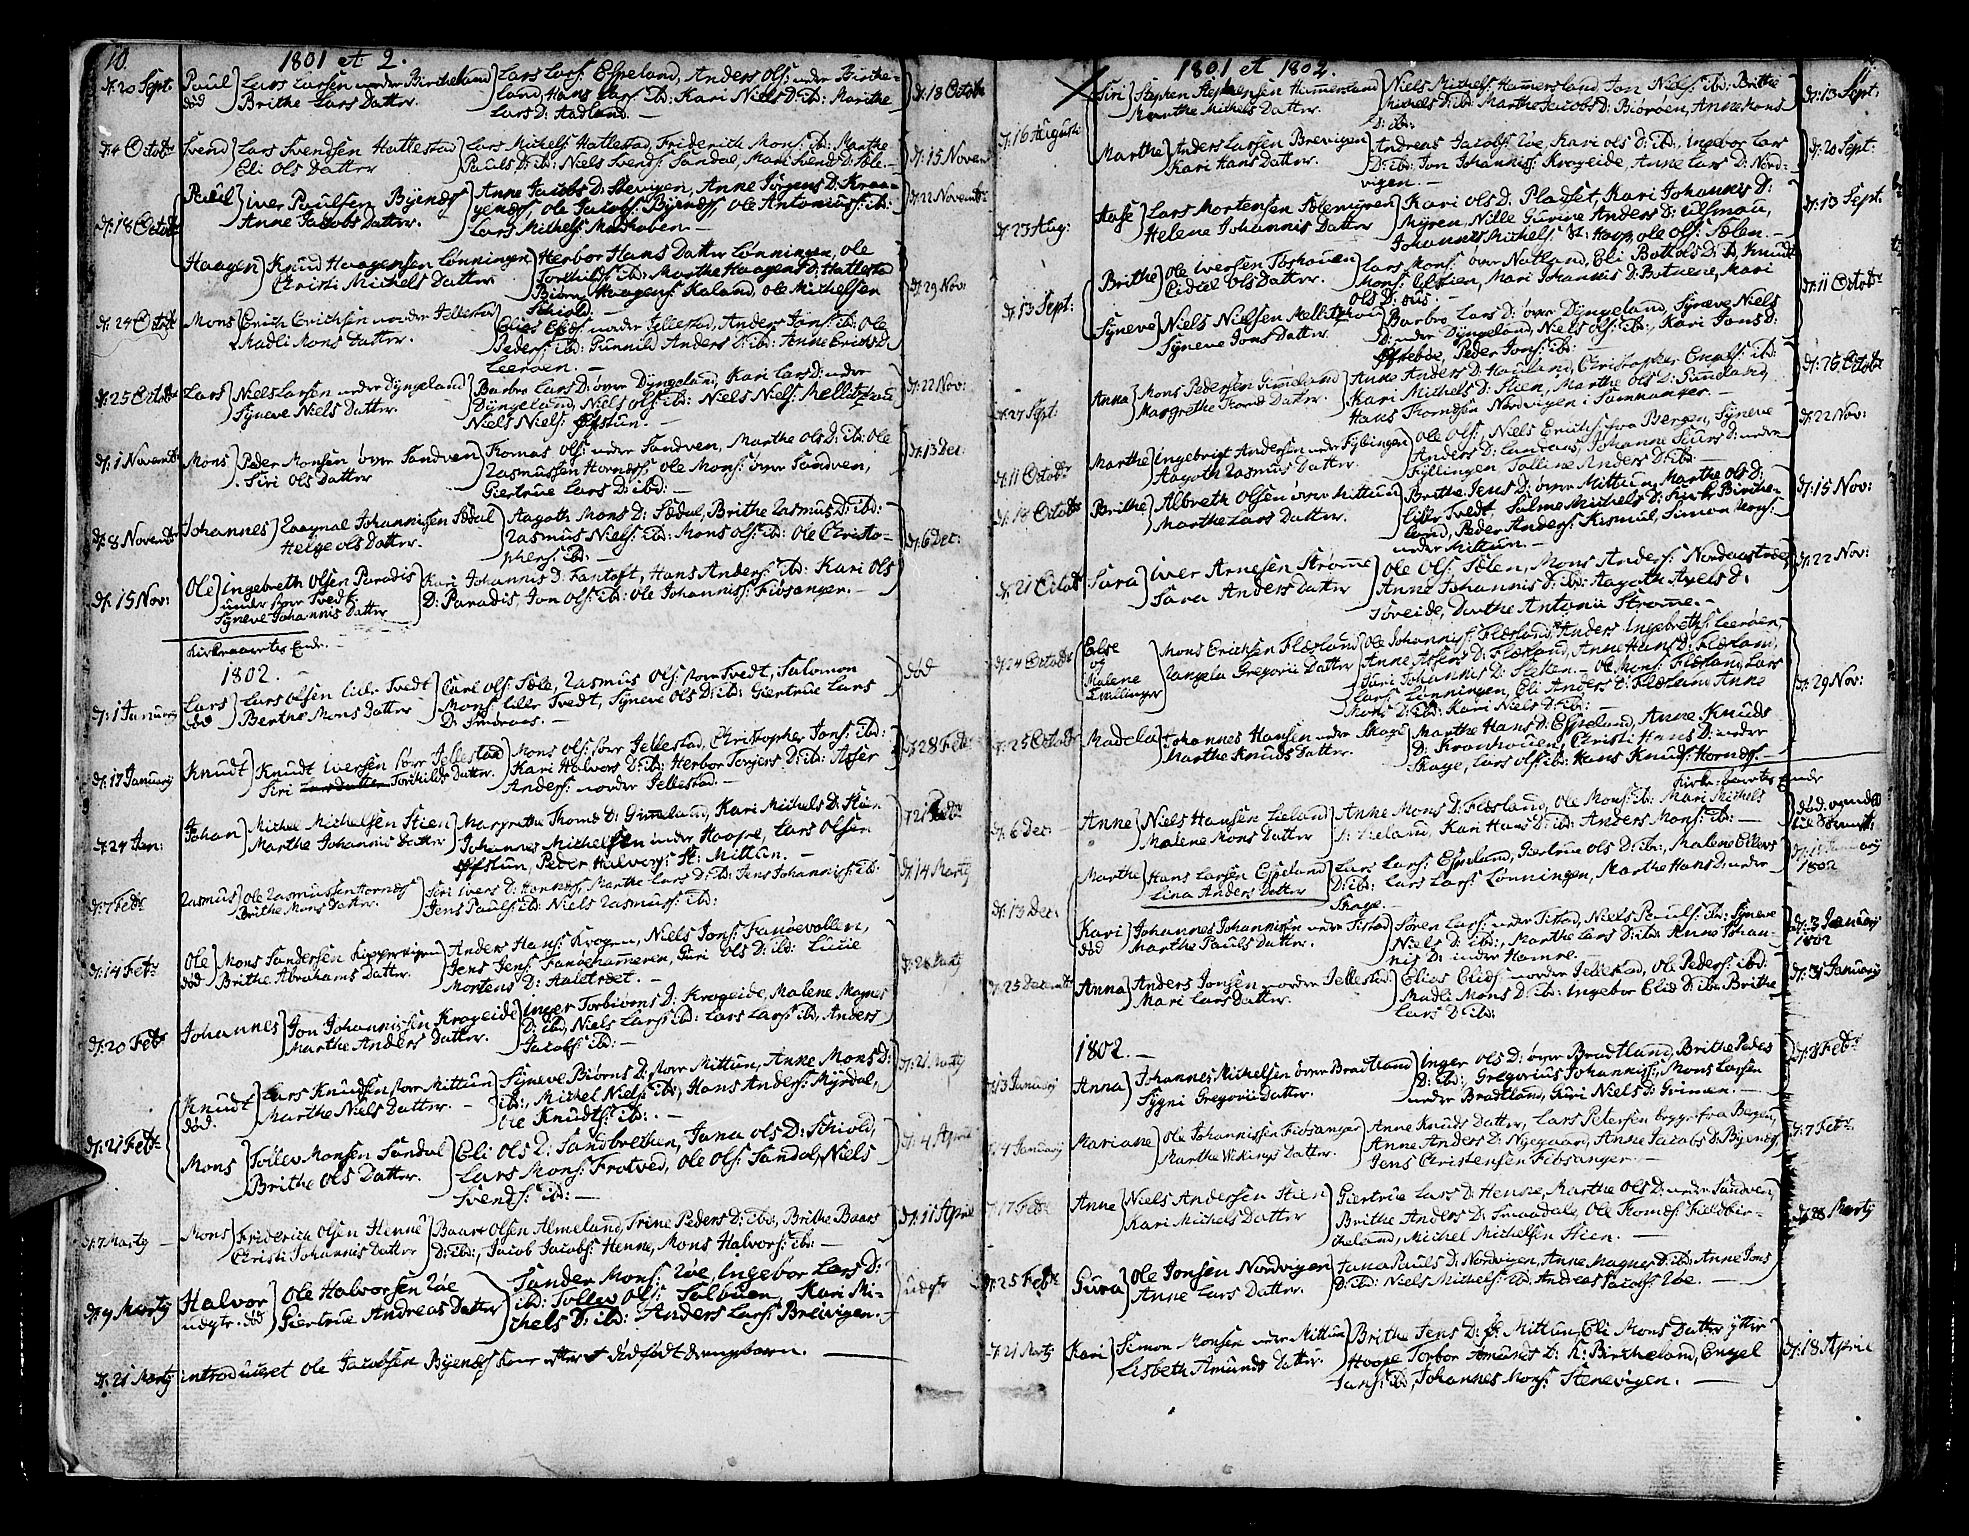 10.
1801 et 2.
d: 20 Sept.
Paul
død
Lars Larsen nordre Birkeland
Brithe Lars Datter
Lars Lars: Espeland, Anders Ols: nedre Birke-
land, Hans Lars: ibd: Kari Niels D: ibd: Marithe
Lars D: Aadland. —
d: 18 Octobr
d: 4 Octobr
Svend
Lars Svendsen Hattestad
Eli Ols Datter
Lars Michels Hattestad, Friderich Mons: ibd: Marthe
Pauls D: ibd: Niels Svends: Sandal, Mari Svend D: Sole —
d: 15 Novem
d: 18 Octobr
Paul
Iver Paulsen Byenæss
Anne Jacobs Datter
Anne Jacobs D: Stevigen, Anne Jørgens D: Kraa-
genæss, Ole Jacobs: Byenæss, Ole Antonius: ibd:
Lars Michels:
d: 22 Novembr
Haagen
Knud Haagensen Lønningen
Christi Michels Datter
Herbor Hans Datter Lønningen, Ole
Torkilds: ibd: Marthe Haagens D: Hattestad
Biørn Haagens: Kaland, Ole Michelsen
Schiold. —
d: 29 Nov:
d: 24 Octobr
Mons
Erich Erichsen nordre Jellestad
Madli Mons Datter.
Elias Elids: nordre Jellestad, Anders Jons: ibd: Ole
Peders: ibd: Gunnild Anders D: ibd: Anne Erichs D:
Leerøen. —
d: 25 Octobr
Lars
Niels Larsen nedre Dyngeland
Syneve Niels Datter.
Barbro Lars D: øvre Dyngeland, Kari Lars D: nedre
Dyngeland, Niels Ols: ibd: Niels Niels: Mellitzhou
Niels Niels: Øfstun. —
d: 22 Nov:
d: 1 Novembr
Mons
Peder Monsen øvre Sandven
Siri Ols Datter
Thomas Ols: nedre Sandven, Marthe Ols D: ibd: Ole
Rasmussen Hornæss: Ole Mons: øvre Sandven,
Giertrue Lars D: ibd: —
d: 13 Dec:
d: 8 Novembr
Johannes
Raagnal Johannissen Sædal
Helge Ols Datter.
Aagoth Mons D: Sædal, Brithe Rasmus D: ibd:
Rasmus Niels: ibd: Mons Ols: ibd: Ole Christo-
phers: ibd: —
d: 6 Dec:
d: 15 Nov:
Ole
Ingebreth Olsen Paradis
under store Tvedt
Syneve Johannis Datter
Kari Johannis D: Fantoft, Hans Anders: ibd: Kari Ols
D: Paradis, Jon Ols: ibd: Ole Johanniss: Fiøsanger. —
Kirkeaarets Ende. —
1802. —
d: 1 January
Lars
død
Lars Olsen lille Tvedt
Berthe Mons Datter
Carl Ols: Sæle, Rasmus Ols: store Tvedt, Salomon
Mons: lille Tvedt, Syneve Ols D: ibd: Giertrue Lars
D: Smøraas. —
død
d: 17 January
Knudt
Knudt Iversen søre Jellestad
Siri Larsdatter Torkilds Datter.
Mons Ols: søre Jellestad, Christopher Jons: ibd:
Kari Halvors D: ibd: Herbor Torjers D: ibd: Asser
Anders: nordre Jellestad. —
d: 28 Febr
d: 24 Jan:
Johan
Michel Michelsen Stien
Marthe Johannis Datter
Margrethe Thomæ D: Gimeland, Kari Michels D: Stien
Johannes Michelsen under Hoope, Lars Olsen
Øfstun, Peder Halvers: St: Mittun. —
d: 21 Febr
d: 7 Febr
Rasmus
Ole Rasmussen Hornæss
Brithe Mons Datter.
Siri Ivers D: Hornæss, Marthe Lars D: ibd: Jens Johanniss: ibd:
Jens Pauls: ibd: Niels Rasmus: ibd:
d: 14 Marty
d: 14 Febr
Ole
død
Mons Sandersen Kippersvigen
Brithe Abrahams Datter.
Anders Hans: Krogen, Niels Jons: Fanøevollen,
Jens Jens: Fanøehameren, Guri Ols D: ibd: Lucie
Mortens D: Aalstrøet. —
d: 28 Marty
d: 20 Febr
Johannes
Jon Johannissen Krogeide
Marthe Anders Datter.
Inger Torbiorns D: Krogeide, Malene Magnes
D: ibd, Niels Lars: ibd: Lars Lars: ibd, Anders
Jacobs: ibd: —
d: 21 Febr
Knudt
død.
Lars Knudsen store Mittun
Marthe Niels Datter. —
Syneve Biørns D: store Mittun, Anne Mons D:
ibd:, Michel Niels: ibd:, Hans Anders: Myrdal,
Ole Knudts: ibd: —
d: 21 Marty
Mons
Tollev Monsen Sandal
Brithe Ols Datter.
Eli Ols D: Sandbrekken, Jana Ols D: Schiold,
Lars Mons: Frotved, Ole Ols: Sandal, Niels
Svends: ibd: —
d: 4 April
d: 7 Marty —
Mons
Friderich Olsen Henne
Christi Johannis Datter
Baar Olsen Almeland, Trine Peders D: ibd:, Brithe Baars
D: ibd:, Jacob Jacobs: Henne, Mons Halvors: ibd: —
d: 11 April
d: 9 Marty
Halvor
udgtr. død
Ole Halvorsen Røe
Giertrue Andreas Datter
Sander Mons: Røe, Ingebor Lars D:
ibd: Tollev Ols: Sælbuen, Kari Mi-
chels D: ibd: Anders Lars: Breivigen. —
udgtr
d: 21 Marty
introduceret Ole Jacobsen Byenæss Kone efter et dødfødt drengebarn. —
11.
1801 et 1802.
d: 16 Augusti
Siri
Stephen Stephensen Hamersland
Marthe Michels Datter.
Niels Michels: Hamersland, Jon Niels: ibd: Brithe
Michels D: ibd: Marthe Jacobs D: Biørøen, Anne Mons
D: ibd:
d: 13 Sept:
Marthe
Anders Larsen Brevigen
Kari Hans Datter.
Andreas Jacobs: Røe, Kari Ols D: ibd:, Ingebor Lars
D: ibd: Jon Johanniss: Krogeide, Anne Lars D: Nord-
vigen. —
d: 20 Sept:
d: 23 Aug:
Aase
Lars Mortensen Solemyren
Helene Johannis Datter
Kari Ols D: Pladset, Kari Johannis D:
Myren, Nille Gurine Anders D: Ulsmau,
Johannes Michels: St: Hoop, Ole Ols: Sælen. —
d: 13 Sept.
d: 13 Sept:
Brithe
Ole Iversen Toshouen
Eidsel Ols Datter.
Lars Mons: øvre Natland, Eli Botholds D: ibd, Knudt
Mons: Estien, Mari Johannis D: Botnene, Mari
Ols D: riis —
d: 11 Octobr
Syneve
Niels Nielsen Mellitzhou
Syneve Jons Datter.
Barbro Lars D: øvre Dyngeland, Syneve Niels
D: nedre Dyngeland, Niels Ols: ibd:, Kari Jons D:
Øfsteboe, Peder Jons: ibd:
d: 27 Sept.
Anna
Mons Pedersen Gimeland
Margrethe Thomæ Datter.
Anne Anders D: Haaland, Christopher Enols: ibd:
Kari Michels D: Stien, Marthe Ols D: Sundland,
Hans Trondsen Nordvigen i Samnanger. —
d: 26 Octobr
d: 11 Octobr
Marthe
Ingebrigt Andersen nedre Fyllingen
Aagoth Rasmus Datter.
Ole Ols:, Niels Erichs: fra Bergen, Syneve
Anders D: Lundaas, Johanne Siurs D: nedre
Fyllingen, Salline Anders D: ibd: —
d: 22 Nov:
d: 18 Octobr
Brithe
Albreth Olsen øvre Mittun
Marthe Lars Datter.
Brithe Jens D: øvre Mittun, Marthe Ols D:
lille Tvedt, Salme Michels D: Kirk-Birke-
land, Peder Anders: Kismul, Simon Mons:
nedre Mittun. —
d: 15 Nov:
d: 21 Octobr
Sara
Iver Arnesen Strømme
Sara Anders Datter
Ole Ols: Sælen, Mons Anders: Nordaastrøe
Anne Johannis D: ibd: Aagoth Axels D:
Søreide, Dorthe Antonii Strøme. —
d: 22 Nov:
d: 24 Octobr
Else
og
Malene
Tvillinger
Mons Erichsen Flæsland
Rangela Gregorii Datter
Ole Johanniss: Flæsland, Anders Ingebreths: Leerøen,
Anne Assers D: Flæsland, Anne Hans D: Flæsland,
Guri Johannis D: Sletten. — Ole Mons: Flæsland, Lars
Lars: Lønningen, Eli Anders D: Flæsland Anne
Mons D: ibd: Kari Niels D: ibd: —
d: 29 Nov:
d: 25 Octobr
Madela
Johannes Hansen nedre Skage
Marthe Knuds Datter.
Marthe Hans D: Espeland, Anne Knuds
D: Kronhouen, Christi Hans D: nedre
Skage, Lars Ols: ibd: Hans Knuds: Hornæss. —
Kirke-aarets Ende
d: 6 Dec:
Anne
Niels Hansen Lieland
Malene Mons Datter
Anne Mons D: Flæsland, Ole Mons: ibd: Mari Michels
D: Lieland, Kari Hans D: ibd: Anders Mons: ibd: —
død. ogendt
d: 13 Dec:
Marthe
Hans Larsen Espeland
Lina Anders Datter
Lars Lars: Espeland, Giertrue Ols D: ibd:, Malene Eilers
D: ibd: Lars Lars: Lønningen, Marthe Hans D: nedre
Skage. —
d: 11 January
1802
Kari
død
Johannes Johannissen nedre Titlestad
Marthe Pauls Datter.
Søren Lars: nedre Titlestad, Niels Pauls: ibd: Syneve
Niels D: ibd:, Marthe Lars D: ibd: Anne Johan-
nis D: under Hamre.
d: 3 January
1802
d: 25 Decembr
Anna
Anders Jonsen nordre Jellestad
Mari Lars Datter.
Elias Elids: nordre Jellestad, Ole Peders: ibd:
Madli Mons D: ibd: Ingebor Elid D: ibd: Brithe
Lars D: ibd:
d: 31 January
1802. —
d: 3 January
Anna
Johannes Michelsen øvre Bradtland
Sygni Gregorii Datter.
Inger Ols D: øvre Bradtland, Brithe Peders
D: ibd:, Gregorius Johanniss:, Mons Larsen
nedre Bradtland, Guri Niels D: Grimen. —
d: 7 Febr
d: 4 January
Mariane
Ole Johannissen Fiøsanger
Marthe Wikings Datter.
Anne Knuds Datter, Lars Petersen bryggr fra Bergen,
Anne Anders D: Nyegaar, Anne Jacobs D: Byenæss
Jens Christensen Fiøsanger. —
d: 7 Febr
d: 17 Febr
Anne
Niels Andersen Stien
Kari Michels Datter
Giertrue Lars D: Henne, Marthe Ols D: nedre Sandven,
Brithe Anders D: Smaadale, Ole Thomæs: Kieldbir-
cheland, Michel Michelsen Stien. —
d: 28 Marty
d: 25 Febr
Gura
Ole Jonsen Nordvigen
Anne Lars Datter.
Jana Pauls D: Nordvigen, Anne Magnes D: ibd: Anne Jons
D: ibd: Niels Michels: ibd, Andreas Jacobs: Røe. —
d: 21 Marty
Kari
Simon Monsen nedre Mittun
Lisbeth Amunds Datter.
Brithe Jens D: Ø: Mittun, Eli Mons Datter yttre
Hoope, Torbor Amunds D: K: Birkeland, Engel
Jans: ibd, Johannes Mons: Stenevigen. —
d: 18 April